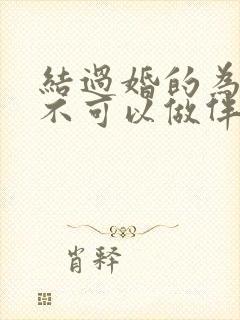 結過婚的為
不可以做伴
肖释